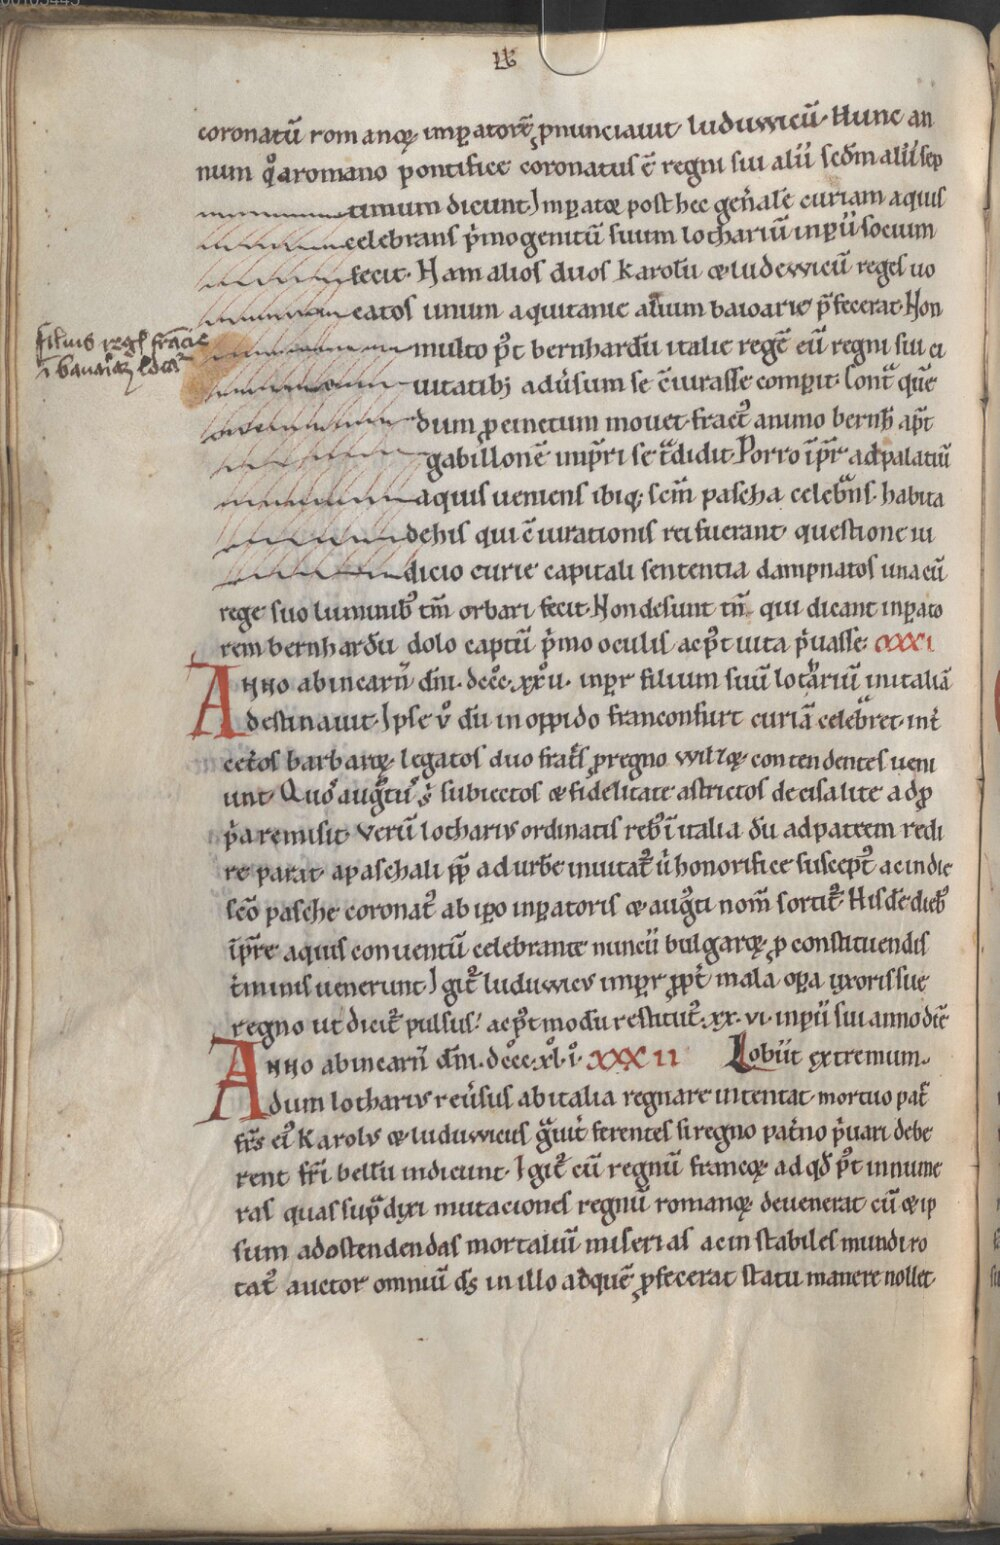 coronatū romanoꝝ imꝑatorē ꝓnunciauit luduwicū. Hunc an
num qͦ a romano pontifice coronatus ē regni sui alii scd̄m alii sep
timum dicunt. Imꝑator post hec gen̄ale curiam aquis
celebrans pͥmogenitū suum lothariū inꝑii socium
fecit. Nam alios duos karolū & ludewicū reges uo
catos unum aquitanie alium baioarie p̄fecerat. Non
filius regis francie
multo pꝰt bernhardū italie regē eū regni sui ci
uitatibꝫ aduersum se ꝯiurasse comꝑit. Contᵃ quē
dum ꝓcinctum mouet. fractꝰ animo bernh̄ apᵈ
gabillonē imꝑri se tᵃdidit. Porro īꝑr̄ ad palatiū
aquis ueniens ibiqꝫ scm̄ pascha celebᵃns. habita
de his qui ꝯiurationis rei fuerant questione iu
dicio curie capitali sententia dampnatos una cū
rege suo luminibꝰ tm̄ orbari fecit. Non desunt tn̄ qui dicant inꝑato
rem bernhardū dolo captū pͥmo oculis ac pꝰt uita pͥuasse. XXXI
Anno ab incarn̄ dn̄i. dcccͦ. xxͦ u. inꝑr filium suū lotariū in italiā
destinauit. Ipse uͦ dū in oppido franconfurt curiā celebᵃret. int̄
cet̄os barbaroꝝ legatos duo frat̄s ꝓ regno wilzoꝝ contendentes ueni
unt. Quos augꝰtꝰ sͥ subiectos & fidelitate astrictos decisa lite ad ꝓ
pͥa remisit. Verū lotharius ordinatis rebꝰ ī italia dū ad patrem redi
re parat. a paschali pp̄ ad urbē inuitatꝰ uͥ honorifice susceptꝰ ac in die
scō pasche coronatꝰ ab ipso inꝑatoris & augꝰti nom̄ sortitꝰ. Hisdē diebꝰ
īꝑr̄e aquis conuentū celebrante nuncii bulgaroꝝ ꝓ constituendis
t̄minis uenerunt. Igitꝰ luduwicus imꝑr ꝓpt̄ mala oꝑa uxoris sue
regno ut dicitꝰ pulsus. ac pꝰt modū restitutꝰ. xx. vi. inꝑii sui anno diē
Anno ab incarn̄ dn̄i. dcccͦ. xlͦ. iͦ. XXXII obiit extremum.
dum lotharius reuersus ab italia regnare intentat. mortuo patre
frs̄ eiꝰ karolus & luduwicus gᵃuit̄ ferentes si regno pat̄no pͥuari debe
rent. frī bellū indicunt. Igitꝰ cū regnū francoꝝ ad qd̄ pꝰt innume
ras quas supᵃ dixi mutaciones regnū romanoꝝ deuenerat cū & ip
sum ad ostendendas mortaliū miserias ac instabiles mundi ro
tatꝰ auctor omniū ds̄ in illo ad quē ꝓfecerat statu manere nollet.